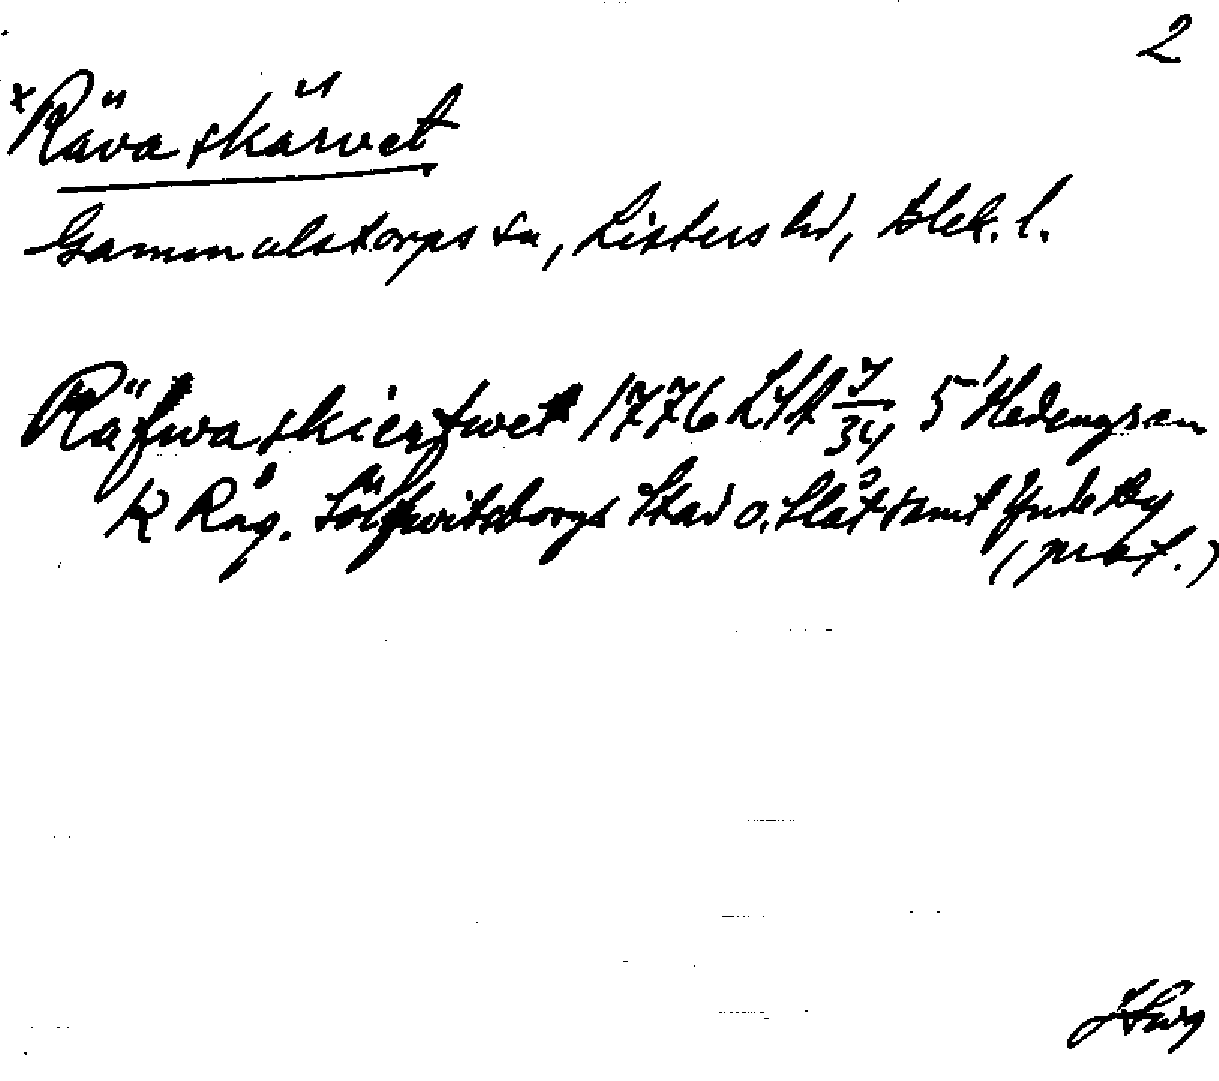 2
*Rävaskärvet
Gammalstorps sn, Listers hd, Blek. l.
Räfwaskierfwet 1776 LSA 7/34 5' Hedengran
K Råg. Sölfwitsborgs Stad o. Slåt samt Ynde By
(prot.)